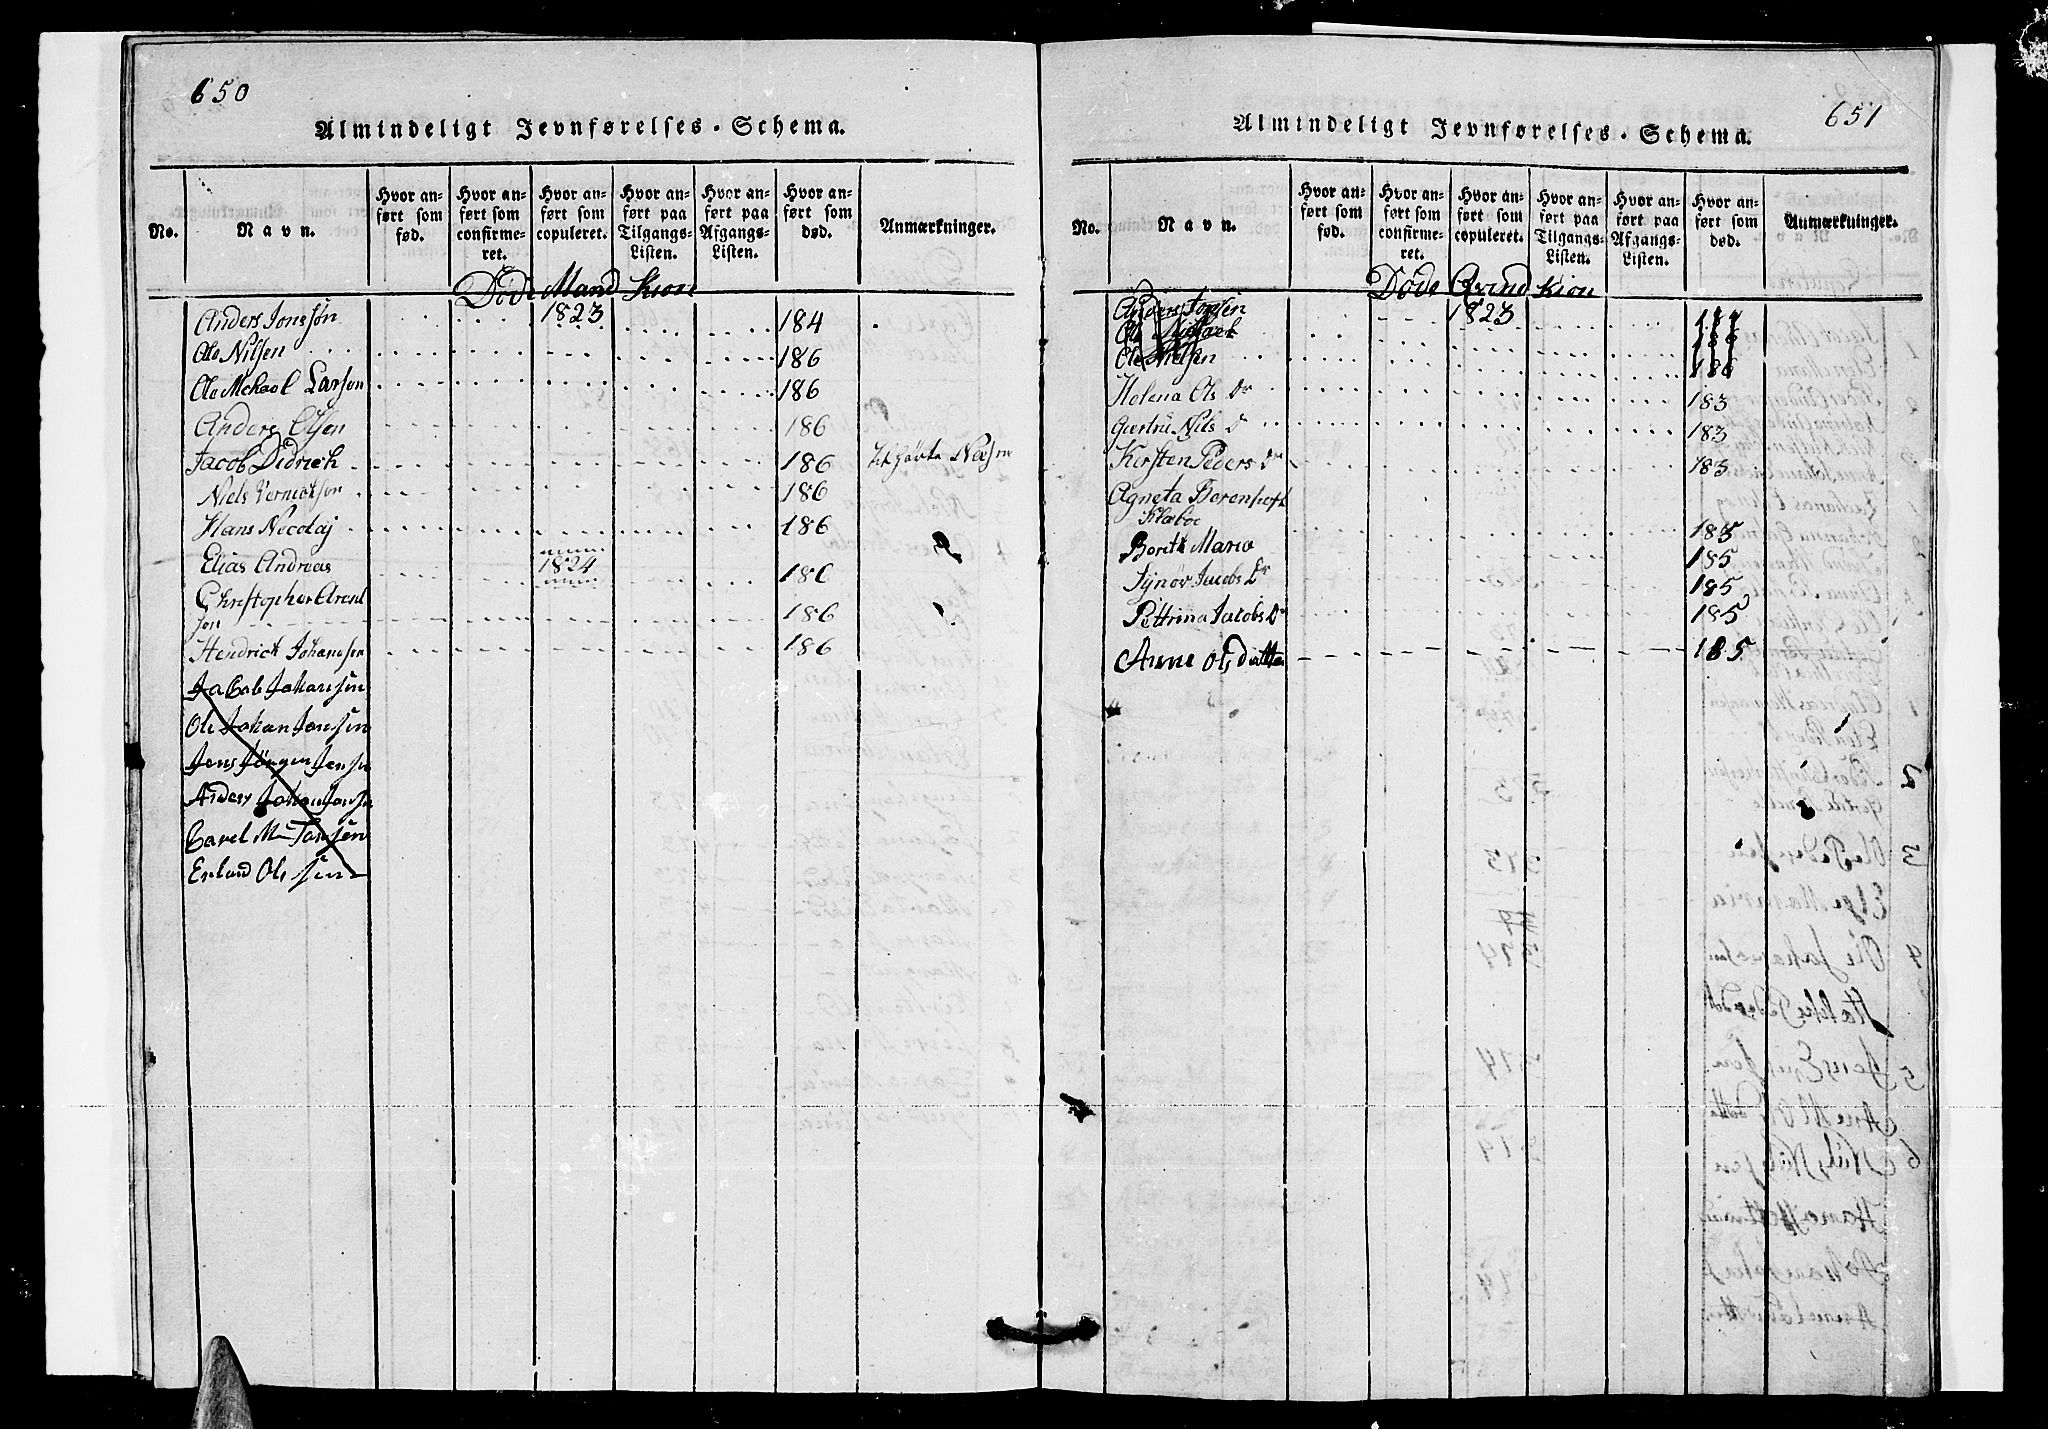 650
Almindeligt Jevnførelses-Schema.
No. Navn. Hvor anført som fød. Hvor anført som confirmeret. Hvor anført som copuleret. Hvor anført paa Tilgangs-Listen. Hvor anført paa Afgangs-Listen. Hvor anført som død. Anmærkninger.
Døde Mand Kion
Anders Jonssøn 1823 184
Ole Nilsen 186
Ole Mchael Larsen 186
Anders Olsen 186
Jacob Didrich 186
Niels 186
Hans Nicolaj 186
Elias Andreas 1824 186
Christopher Arent
sen 186
Hendrick Johansen 186
Jacob Johansen
Ole Johan Jonsen
Jens Jörgen Jensen
Anders Johan Jonsen
Carel M
Erland Olssen
651
Almindeligt Jevnførelses-Schema.
No. Navn. Hvor anført som fød. Hvor anført som confirmeret. Hvor anført som copuleret. Hvor anført paa Tilgangs-Listen. Hvor anført paa Afgangs-Listen. Hvor anført som død. Anmærkninger.
Døde Qvind Kion
Anders Jonsen 1823 184
Ole Michael 186
Ole Nielsen 186
Helena Ols Dr 183
Giertru Nils D 183
Kirsten Peders Dr 183
Agneta
Klæboe 185
Borith Maria 185
Synøv Jacobs Dr 185
Pettrina Jacobs Dr 185
Anne Olsdatter 185